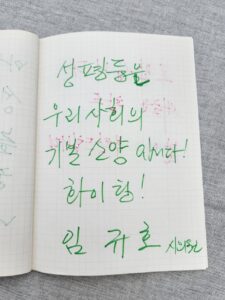 성평등은
우리사회의
기본 소양 입니다!
화이팅!
임 규 호 시의원